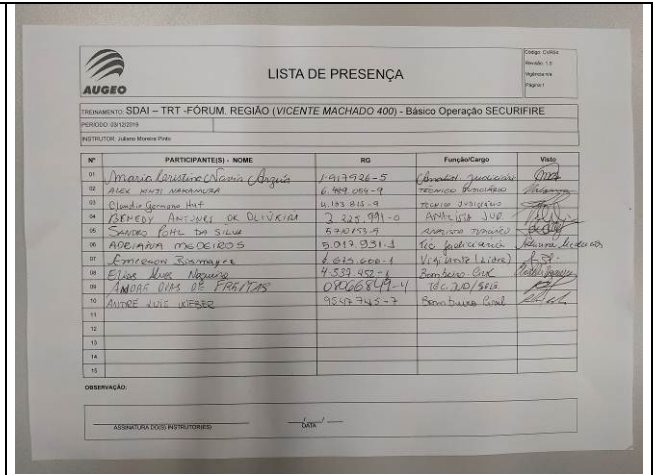 AUGEO
LISTA DE PRESENÇA
Revisão: 1.0
Página 1
TREINAMENTO: SDAI – TRT -FÓRUM. REGIÃO (VICENTE MACHADO 400) - Básico Operação SECURIFIRE
PERÍODO: 03/12/2019
INSTRUTOR: Juliano Moreira Pinto
Nº PARTICIPANTE(S) - NOME RG Função/Cargo Visto
01 Maria Cristina Navia 1.917926-5
02 ALEX KINJI NAKAMURA 6.989.054-9 TÉCNICO JUDICIÁRIO
03 Claudio Germano Hut 4.193.815-9 TÉCNICO JUDICIÁRIO
04 BENEDY ANTUNES DE OLIVEIRA 3.225.991-0 ANALISTA JUD
05 SANDRO POHL DA SILVA ANALISTA
06 ADRIANA MEDEIROS 5.017.931-1 Téc. Judiciária
07 Emerson 6.675.600-1 Vigilante
08 Elias Alves Nogueira 4.537.452-1 Bombeiro Civil
09 ANDRÉ DIAS DE FREITAS 08066849-4 TÉC.JUD/
10 ANDRÉ LUIS WEBER 9547745-7 Bombeiro Civil
11
12
13
14
15
OBSERVAÇÃO:
ASSINATURA DO(S) INSTRUTOR(ES) DATA